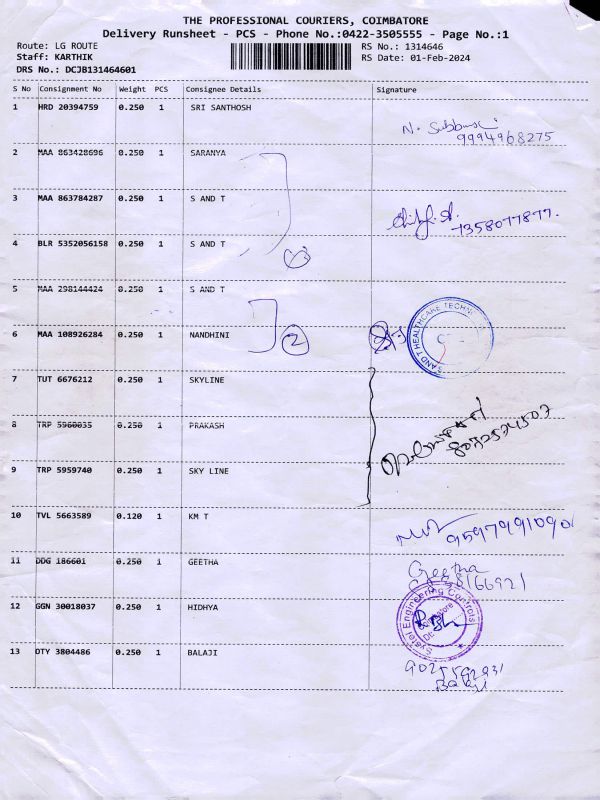 THE PROFESSIONAL COURIERS, COIMBATORE
Delivery Runsheet - PCS - Phone No.:0422-3505555 - Page No.:1
Route: LG ROUTE RS No.: 1314646
Staff: KARTHIK RS Date: 01-Feb-2024
DRS No.: DCJB131464601
S No Consignment No Weight PCS Consignee Details Signature
1 HRD 20394759 0.250 1 SRI SANTHOSH
9994968275
2 MAA 863428696 0.250 1 SARANYA
3 MAA 863784287 0.250 1 S AND T
7358077877.
4 BLR 5352056158 0.250 1 S AND T
5 MAA 298144424 0.250 1 S AND T
6 MAA 108926284 0.250 1 NANDHINI 2
S AND T HEALTHCARE
7 TUT 6676212 0.250 1 SKYLINE
8 TRP 5960035 0.250 1 PRAKASH
9 TRP 5959740 0.250 1 SKY LINE
10 TVL 5663589 0.120 1 KM T
9597991090
11 DDG 186601 0.250 1 GEETHA
Geetha
12 GGN 30018037 0.250 1 HIDHYA
Engineering Controls
13 OTY 3804486 0.250 1 BALAJI
Balaji